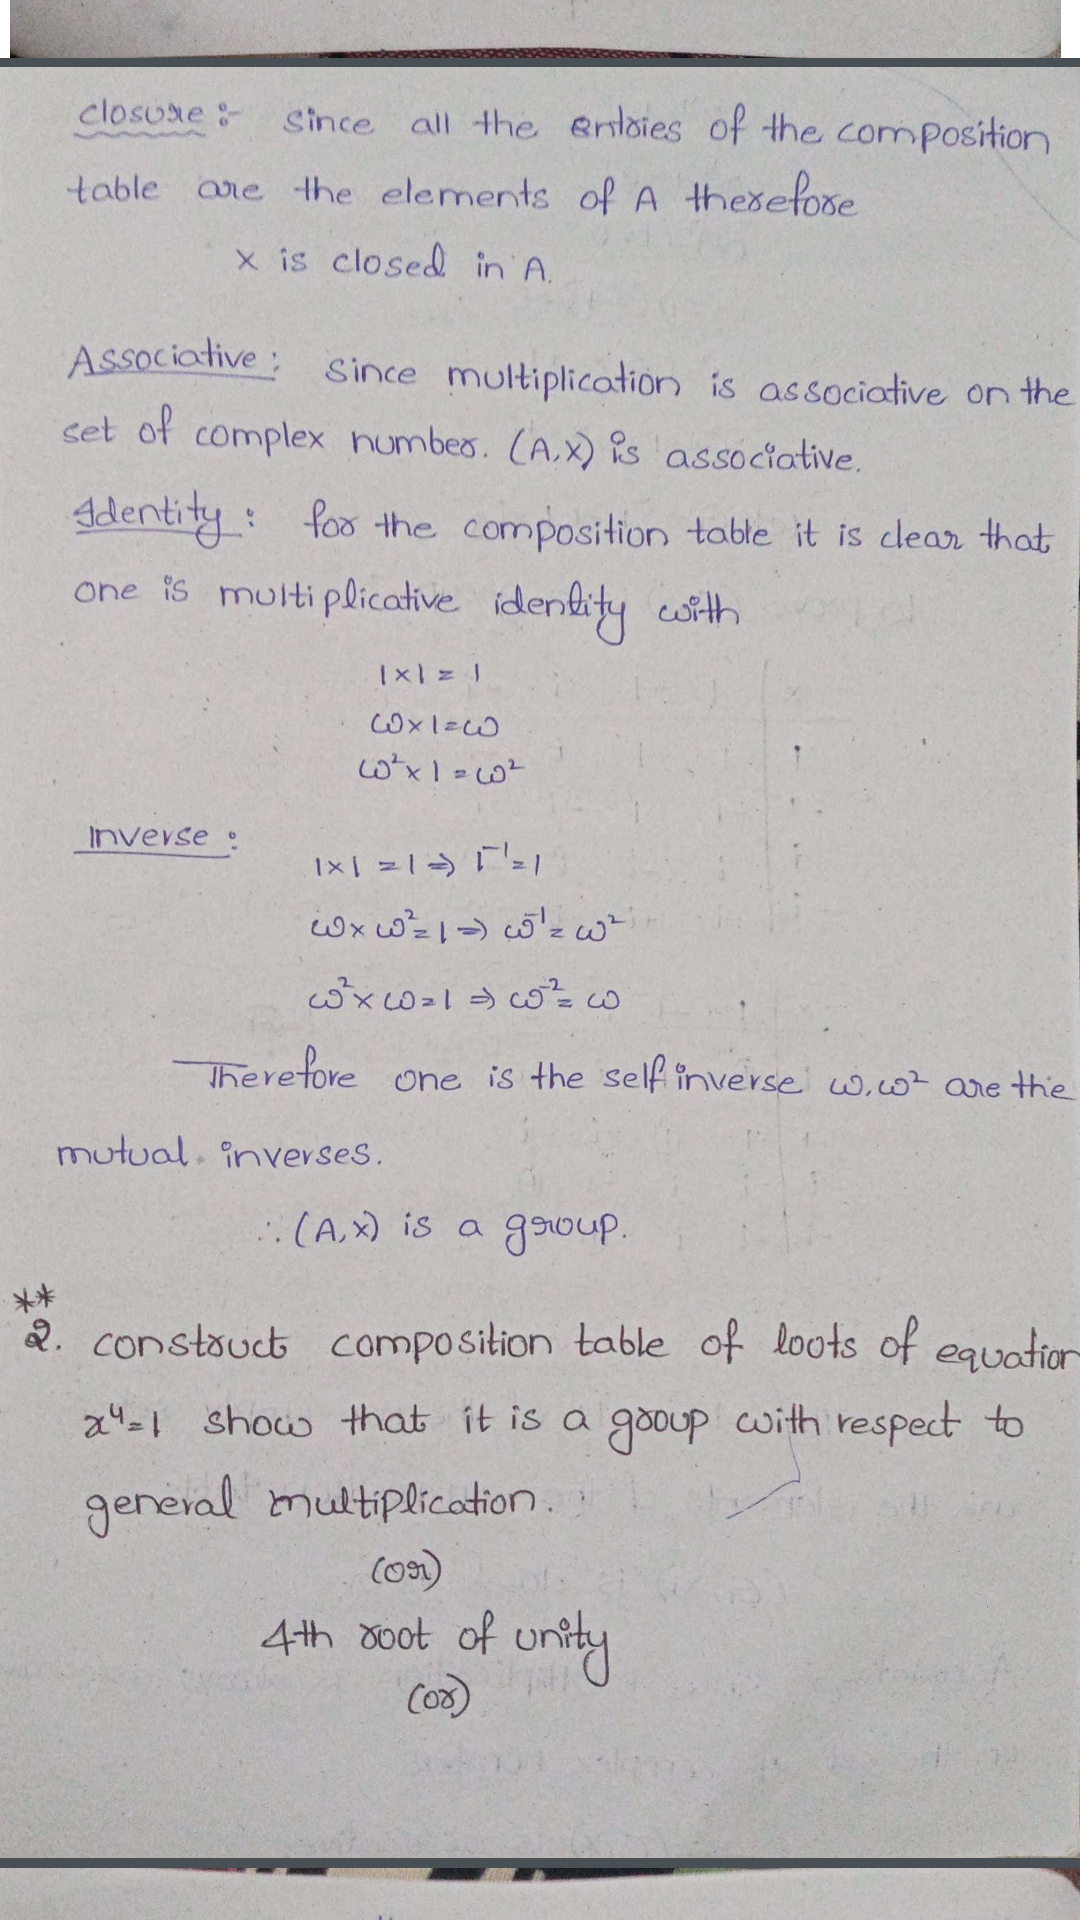 closure :- Since all the entries of the composition
table are the elements of A therefore
× is closed in A.
Associative : Since multiplication is associative on the
set of complex number. (A,×) is associative.
Identity : for the composition table it is clear that
one is multiplicative identity with
1×1=1
ω×1=ω
ω²×1=ω²
Inverse :
1×1=1⇒1⁻¹=1
ω×ω²=1⇒ω⁻¹=ω²
ω²×ω=1⇒ω⁻²=ω
Therefore one is the self inverse ω,ω² are the
mutual inverses.
∴ (A,×) is a group.
**
2. construct composition table of loots of equation
x⁴=1 show that it is a group with respect to
general multiplication.
(or)
4th root of unity
(or)